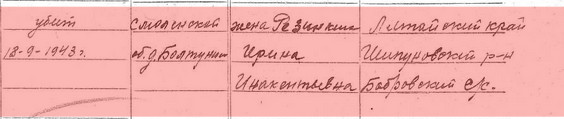 убит Смоленской жена Резинкина Алтайский край
18-9-1943г. об. д. Болтунино Ирина Шипуновский р-н
Инакентьевна Бобровский с/с.